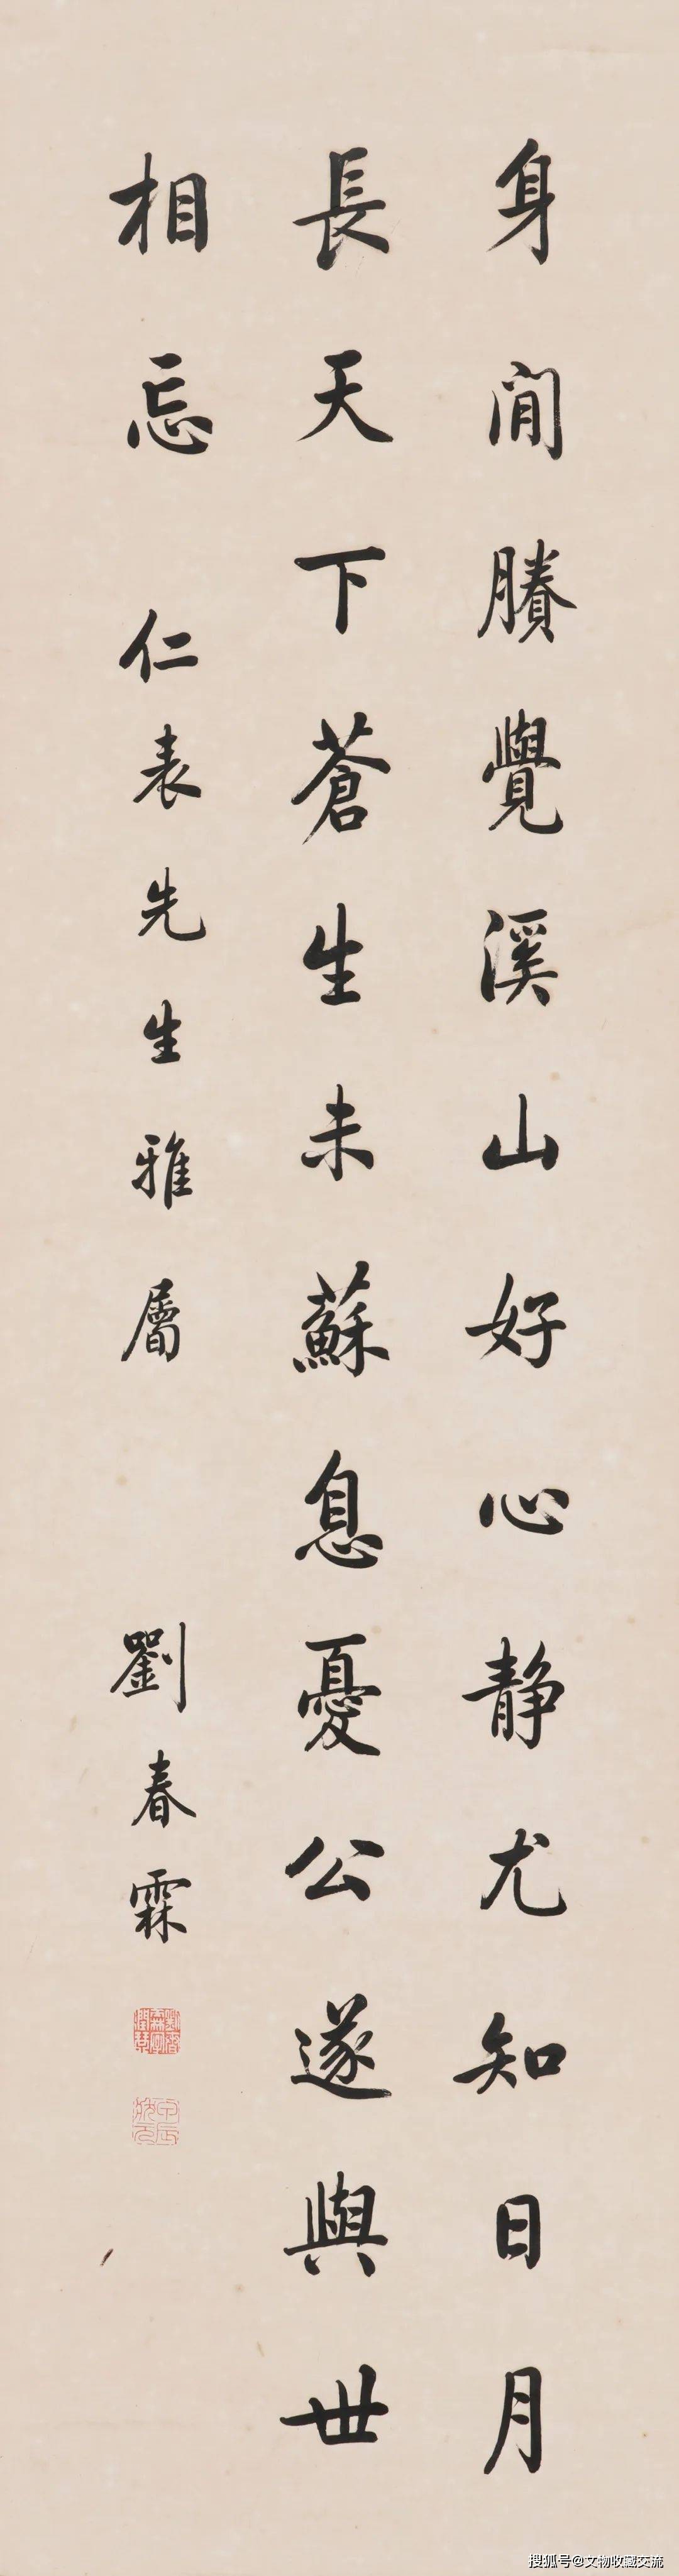 身閒賸覺溪山好心静尤知日月
長天下蒼生未蘇息憂公遂與世
相忘 仁表先生雅屬 劉春霖
搜狐号@文物收藏交流